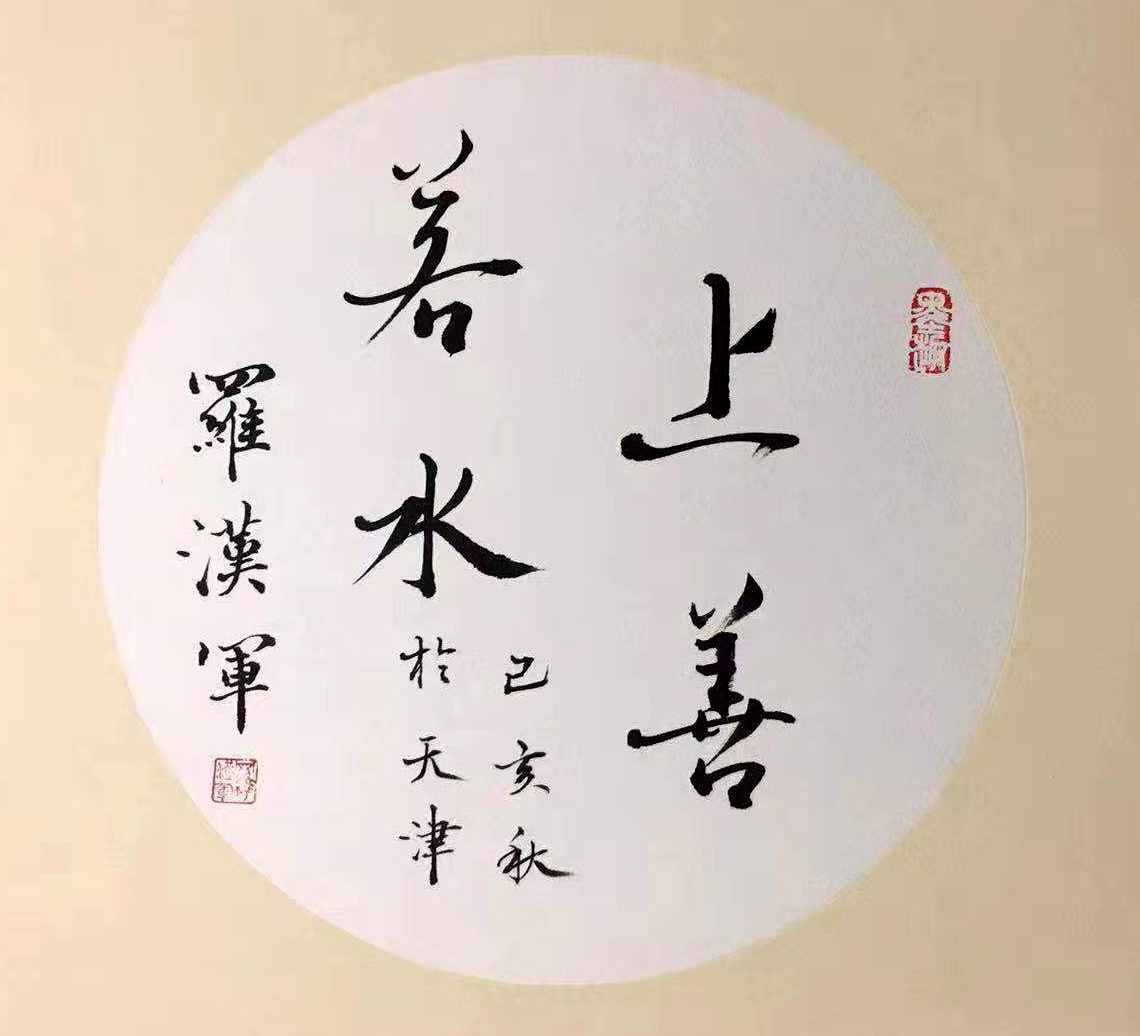 上善
若水
己亥秋
於天津
羅漢軍